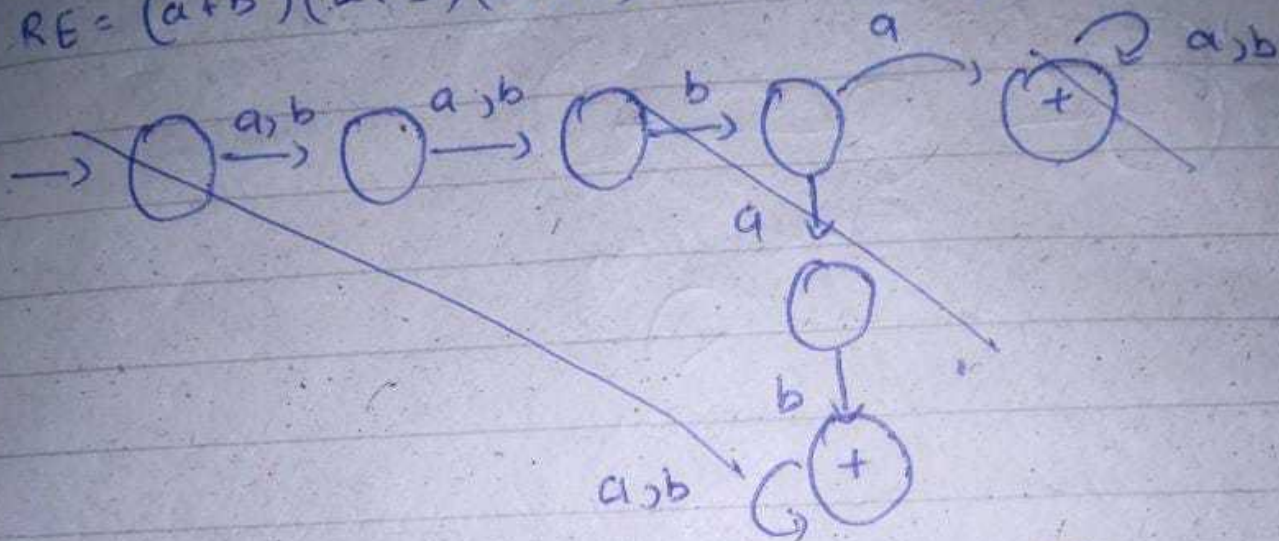 RE = (a+b)(a+b)(
a
a,b
a,b
a,b
b
+
a
b
a,b
+